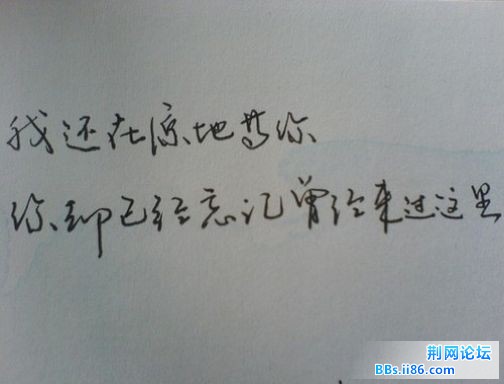 我还在原地等你
你却已经忘记曾经来过这里
荆网论坛
BBs.ii86.com